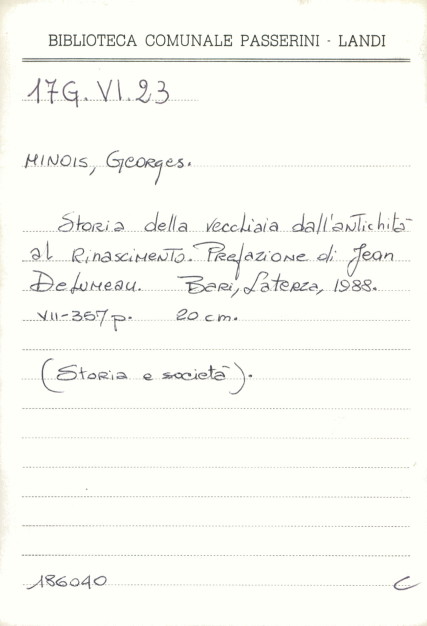 BIBLIOTECA COMUNALE PASSERINI - LANDI
17G. VI. 23
MINOIS, Georges.
Storia della vecchiaia dall'antichità
al Rinascimento. Prefazione di Jean
Delumeau. Bari, Laterza, 1988.
VII-357 p. 20 cm.
(Storia e società).
186040 C